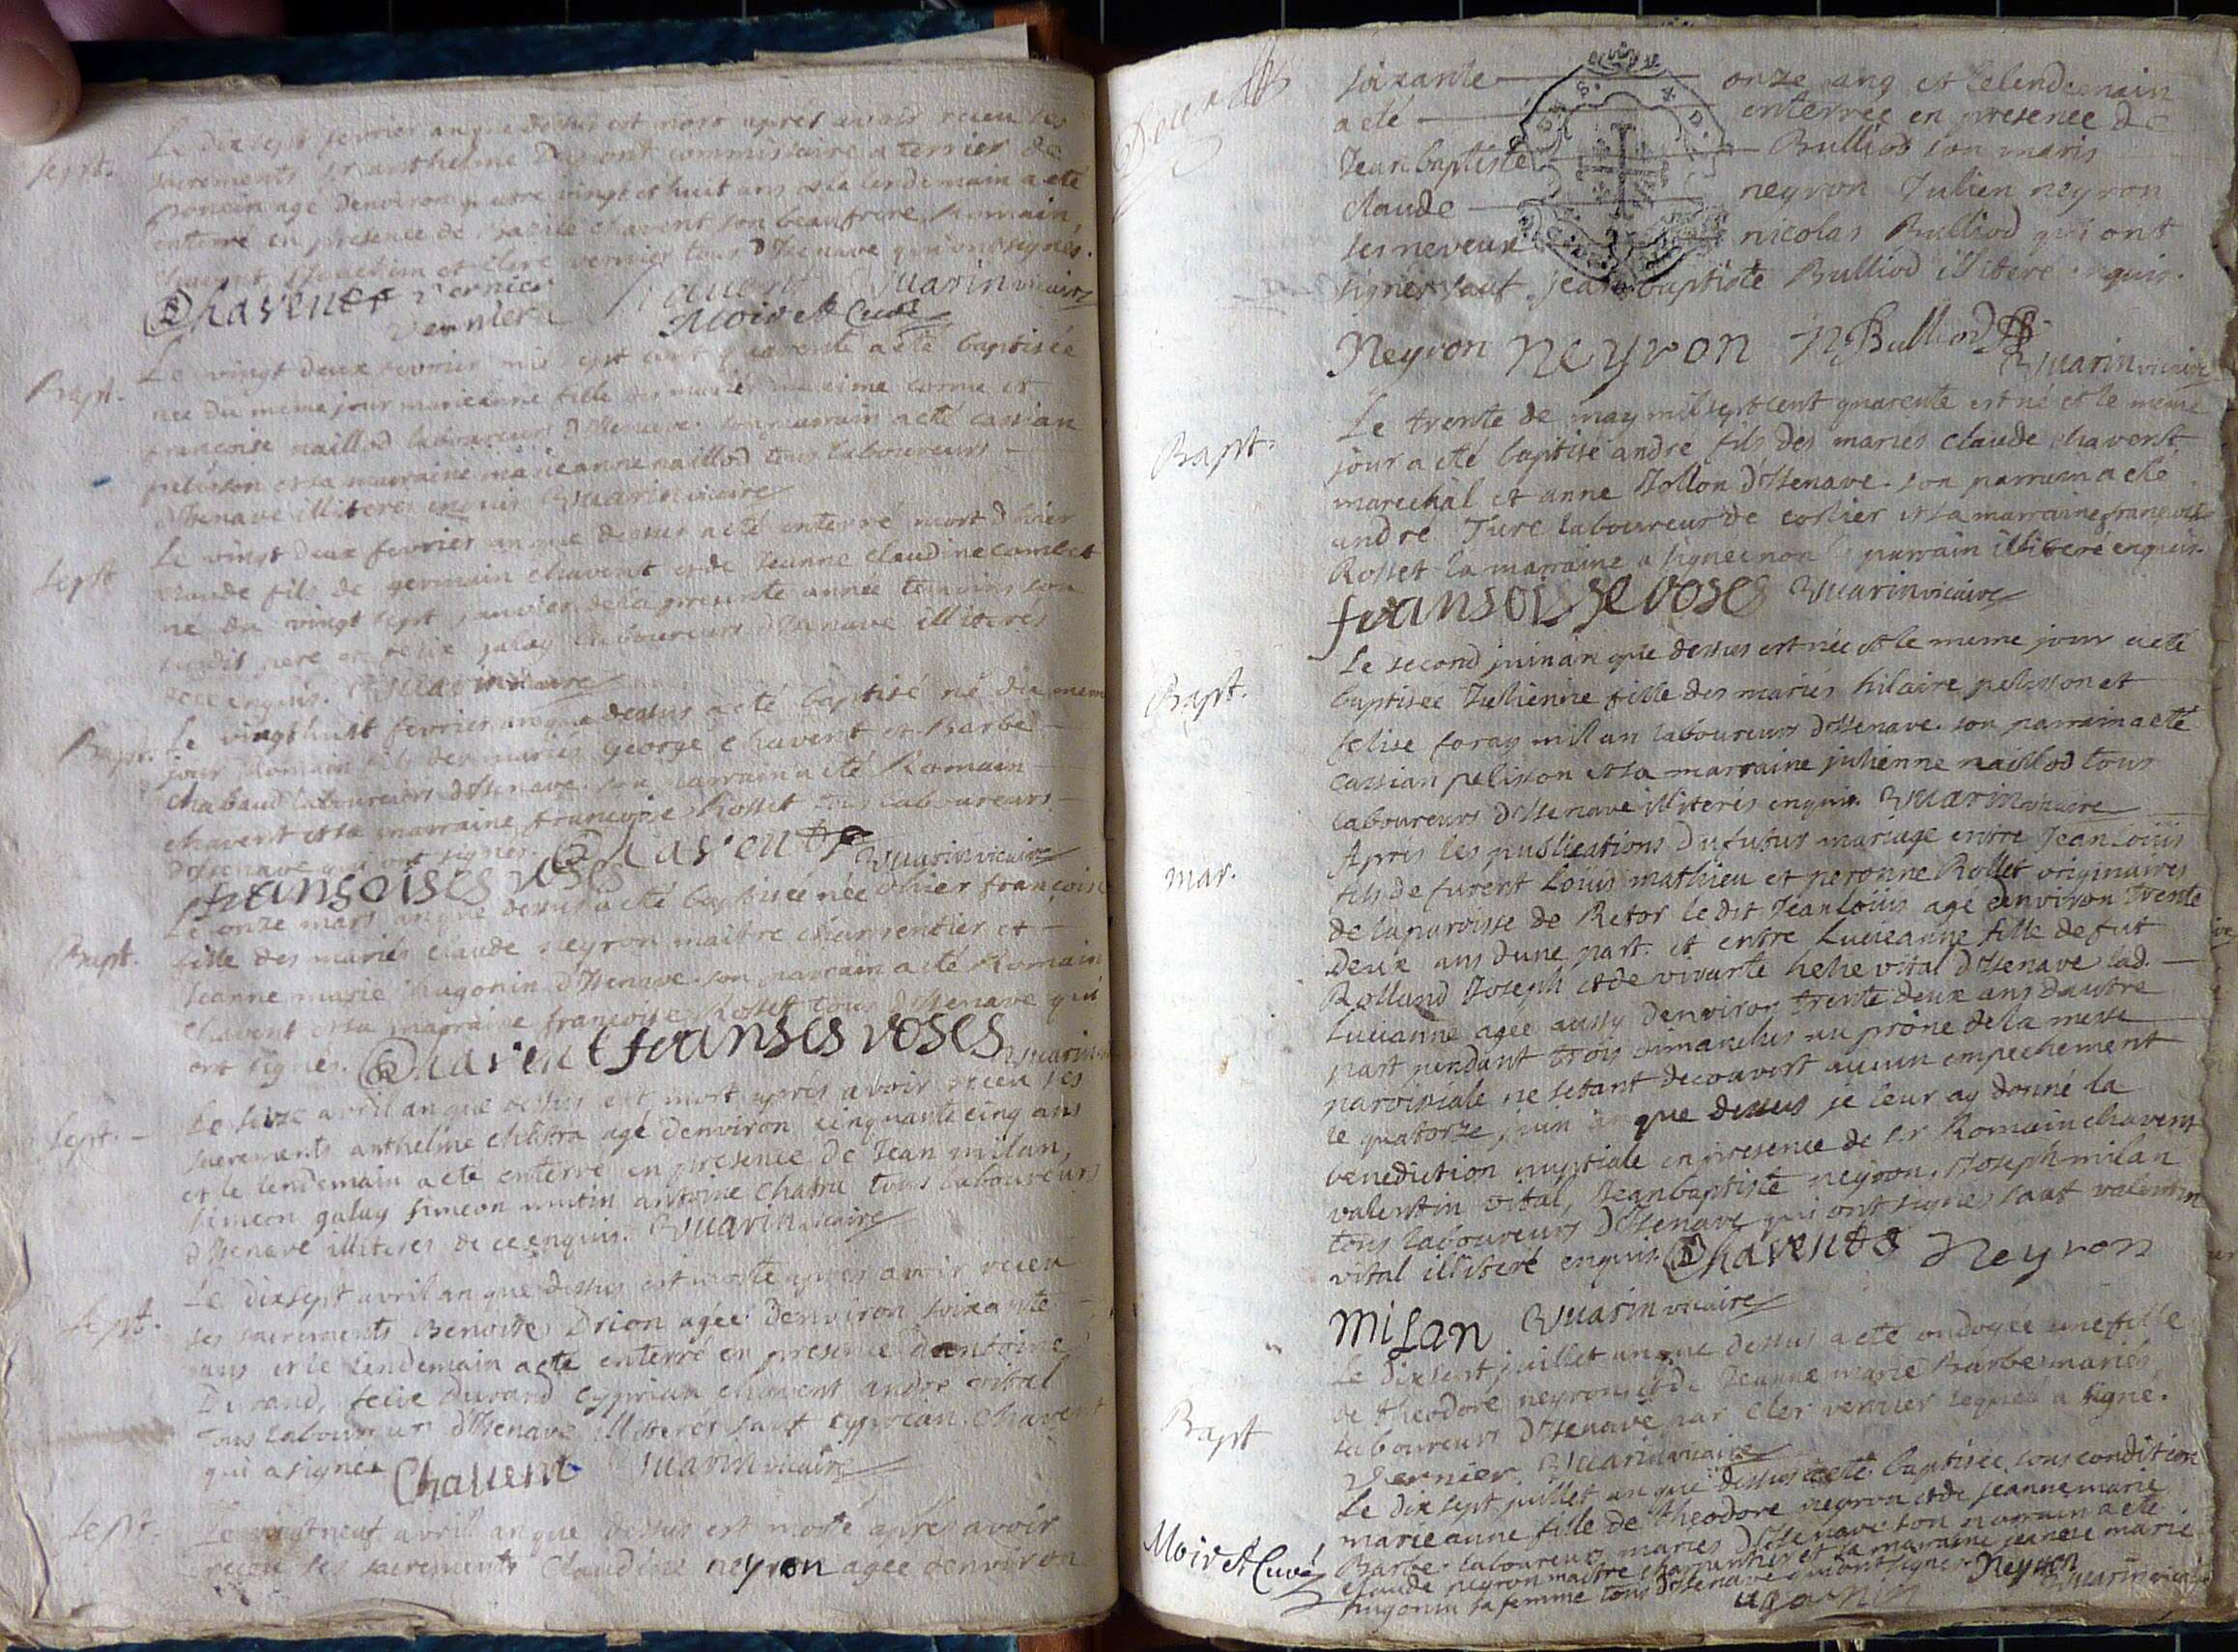 sept.
Le dixsept fevrier an que dessus est mort aprés avoir receu ses
sacrements sr anthelme Dupont commissaire a terrier de
poncin agé denviron quatre vingt et huit ans et le lendemain a eté
enterré en presence de chavent son beaufrere, Romain
chavent, et cler vernier tous d'Izenave qui ont signés.
Chavent vernier chavent Vuarin vicaire
Moiret Curé
Bapt.
Le vingt deux fevrier mil sept cent quarente a eté baptisée
née du meme jour marieanne fille des mariés maxime corme et
francoise naillod laboureurs d'Izenave. son parrain a eté cassian
pelisson et sa marraine marieanne naillod tous laboureurs
d'Izenave illiteres enquis Vuarin vicaire
sept
Le vingt deux fevrier an que dessus a eté enterré mort d'hier
claude fils de germain chavent et de Jeanne claudine combet
né du vingt sept janvier de la presente année temoins son
susdit pere et galay laboureurs d'Izenave illiterés
de ce enquis. Vuarin vicaire
Bapt.
Le vingt huit fevrier an que dessus a eté baptisé né du meme
jour Romain fils des mariés George chavent et Barbe
chabaud laboureurs d'Izenave. son parrain a eté Romain
chavent et sa marraine francoise Rosset tous laboureurs
d'Izenave qui ont signés. Chavent Vuarin vicaire
fransoises roses
Bapt.
Le onze mars an que dessus a eté baptisée née d'hier françoise
fille des mariés claude neyron maitre charpentier et
Jeanne marie hugonin d'Izenave. son parrain a eté Romain
chavent et sa marraine francoise Rosset tous d'Izenave qui
ont signés. Chavent franses roses Vuarin
sept.
Le seize avril an que dessus est mort apres avoir receu ses
sacrements anthelme chatra agé denviron cinquante cinq ans
et le lendemain a eté enterré en presence de Jean milan,
simeon galay simeon mutin antoine chatra tous laboureurs
d'Izenave illiteres de ce enquis. Vuarin vicaire
sept.
Le dixsept avril an que dessus est morte apres avoir receu
ses sacrements Benoite Drion agée denviron soixante
ans et le lendemain a eté enterré en presence dantoine
Durand, felix durand cyprian chavent andre vital
Tous laboureurs d'Izenave illiterés sauf cyprian chavent
qui a signé Chavent Vuarin vicaire
sept.
Le vingt neuf avril an que dessus est morte aprés avoir
receu ses sacrements Claudine neyron agée denviron
soixante onze ans et le lendemain
a eté enterrée en presence de
Jean baptiste Bulliod son maris
claude neyron Julien neyron
ses neveux nicolas Bulliod qui ont
signés sauf jean baptiste Bulliod illiteré enquis.
Neyron neyron N Bulliod
Vuarin vicaire
Bapt.
Le trente de may mil sept cent quarente est né et le meme
jour a eté baptisé andre fils des mariés claude chavent
marechal et anne Jollon d'Izenave. son parrain a eté
andré Ture laboureur de et sa marraine françoise
Rosset la marraine a signée non le parrain illiteré enquis.
fransoisse roses Vuarin vicaire
Bapt.
Le second juin an que dessus est née et le meme jour a eté
baptisée Julienne fille des mariés hilaire pelisson et
felise foray millan laboureurs d'Izenave. son parrain a eté
cassian pelisson et sa marraine julienne naillod tous
laboureurs d'Izenave illiterés enquis. Vuarin vicaire
mar.
Apres les publications du futur mariage entre Jean Louis
fils de furent Louis mathieu et peronne Rollet originaires
de la paroisse de Retor le dit Jean Louis agé denviron trente
deux ans dune part. et entre Lucieanne fille de fut
Rolland Joseph et de vivarte helie vital d'Izenave lad.
Lucianne agée aussy denviron trente deux ans dautre
part pendant trois dimanches au prône de la messe
paroissiale ne setant decouvert aucun empechement
le quatorze juin an que dessus je leur ay donné la
benediction nuptiale en presence de sr Romain chavent
valentin vital, Jean baptiste neyron, Joseph milan
tous laboureurs d'Izenave qui ont signés sauf valentin
vital illiteré enquis. Chavent Neyron
Milan Vuarin vicaire
Bapt
Le dixsept juillet an que dessus a eté ondoyée une fille
de theodore neyron et de Jeanne marie Barbe mariés
laboureurs d'Izenave par Cler vernier lequel a signé.
Vernier Vuarin vicaire
Le dix sept juillet an que dessus a eté baptisée sous condition
marieanne fille de theodore neyron et de jeanne marie
Barbe laboureurs mariés d'Izenave son parrain a eté
claude neyron maitre charpentier et sa maraine jeanne marie
hugonin sa femme tous d'Izenave qui ont signé. Neyron
ugonin Vuarin vicaire
Moiret Curé